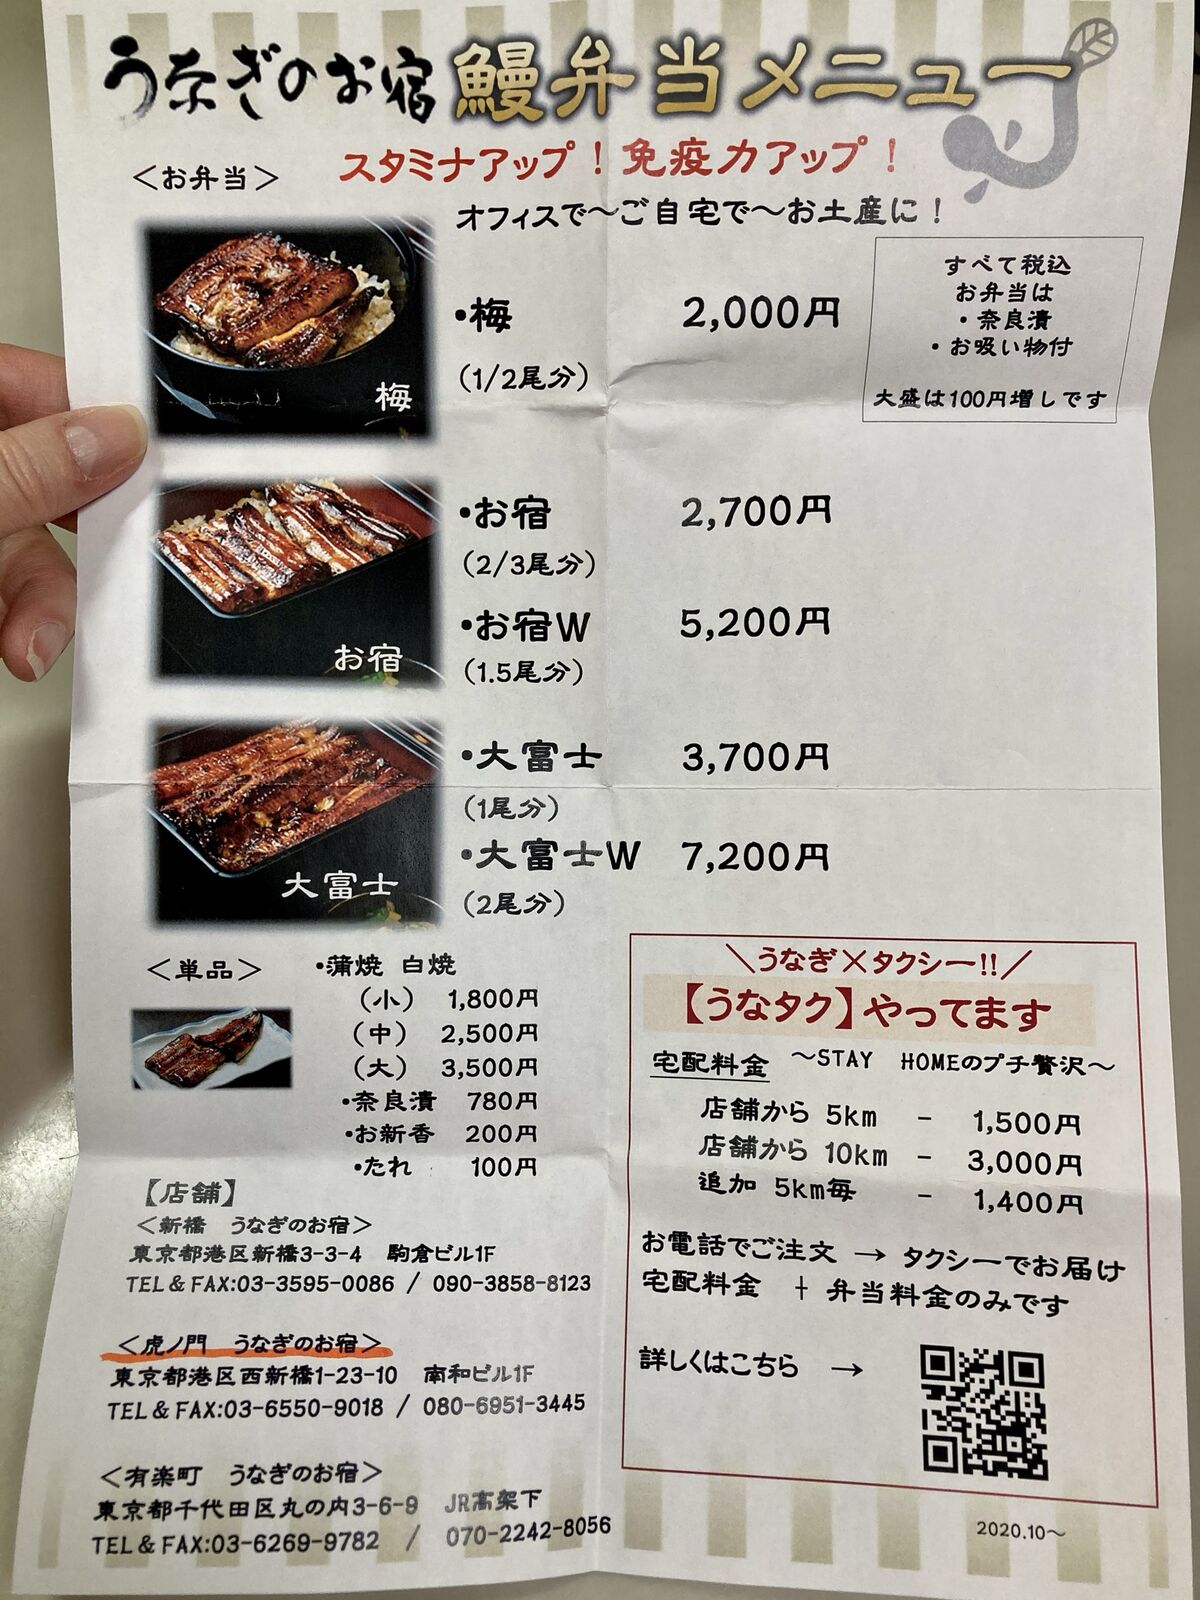 うなぎのお宿 鰻弁当メニュー
スタミナアップ！免疫力アップ！
＜お弁当＞
オフィスで～ご自宅で～お土産に！
すべて税込
お弁当は
・奈良漬
・お吸い物付
大盛は100円増しです
梅
・梅 2,000円
(1/2尾分)
お宿
・お宿 2,700円
(2/3尾分)
・お宿W 5,200円
(1.5尾分)
大富士
・大富士 3,700円
(1尾分)
・大富士W 7,200円
(2尾分)
＜単品＞
・蒲焼 白焼
(小) 1,800円
(中) 2,500円
(大) 3,500円
・奈良漬 780円
・お新香 200円
・たれ 100円
＼うなぎ×タクシー!!／
【うなタク】やってます
宅配料金 ～STAY HOMEのプチ贅沢～
店舗から 5km － 1,500円
店舗から 10km － 3,000円
追加 5km毎 － 1,400円
お電話でご注文 → タクシーでお届け
宅配料金 ＋ 弁当料金のみです
詳しくはこちら →
【店舗】
＜新橋 うなぎのお宿＞
東京都港区新橋3-3-4 駒倉ビル1F
TEL＆FAX:03-3595-0086 / 090-3858-8123
＜虎ノ門 うなぎのお宿＞
東京都港区西新橋1-23-10 南和ビル1F
TEL＆FAX:03-6550-9018 / 080-6951-3445
＜有楽町 うなぎのお宿＞
東京都千代田区丸の内3-6-9 JR高架下
TEL＆FAX:03-6269-9782 / 070-2242-8056
2020.10～